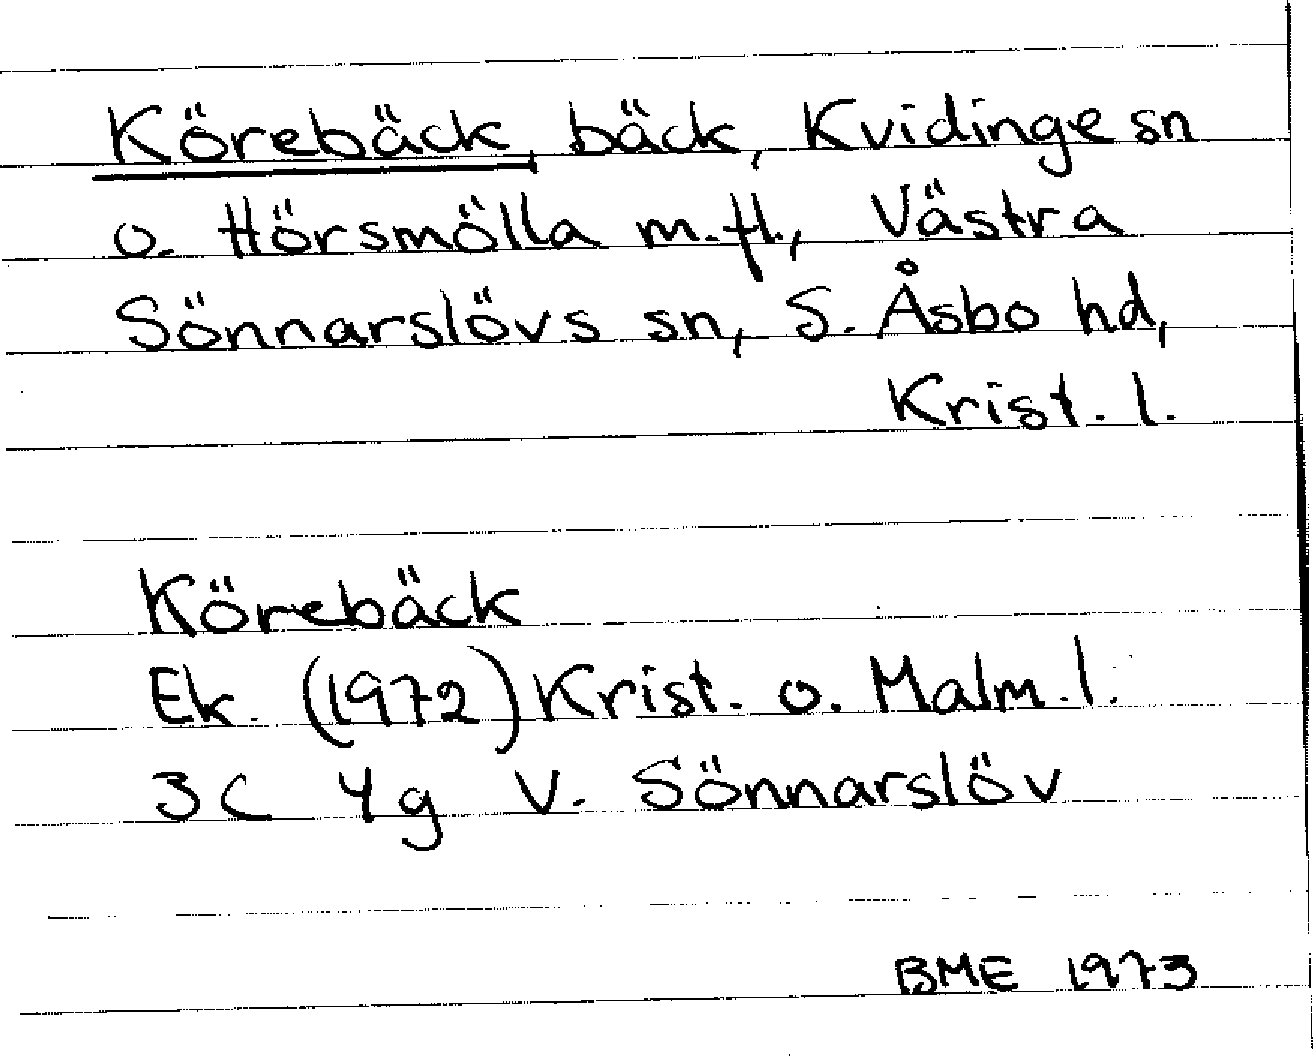 Körebäck, bäck, Kvidinge sn
o. Hörsmölla m.fl., Västra
Sönnarslövs sn, S. Åsbo hd,
Krist. l.
Körebäck
Ek. (1972) Krist. o. Malm. l.
3C 4g V. Sönnarslöv
BME 1973